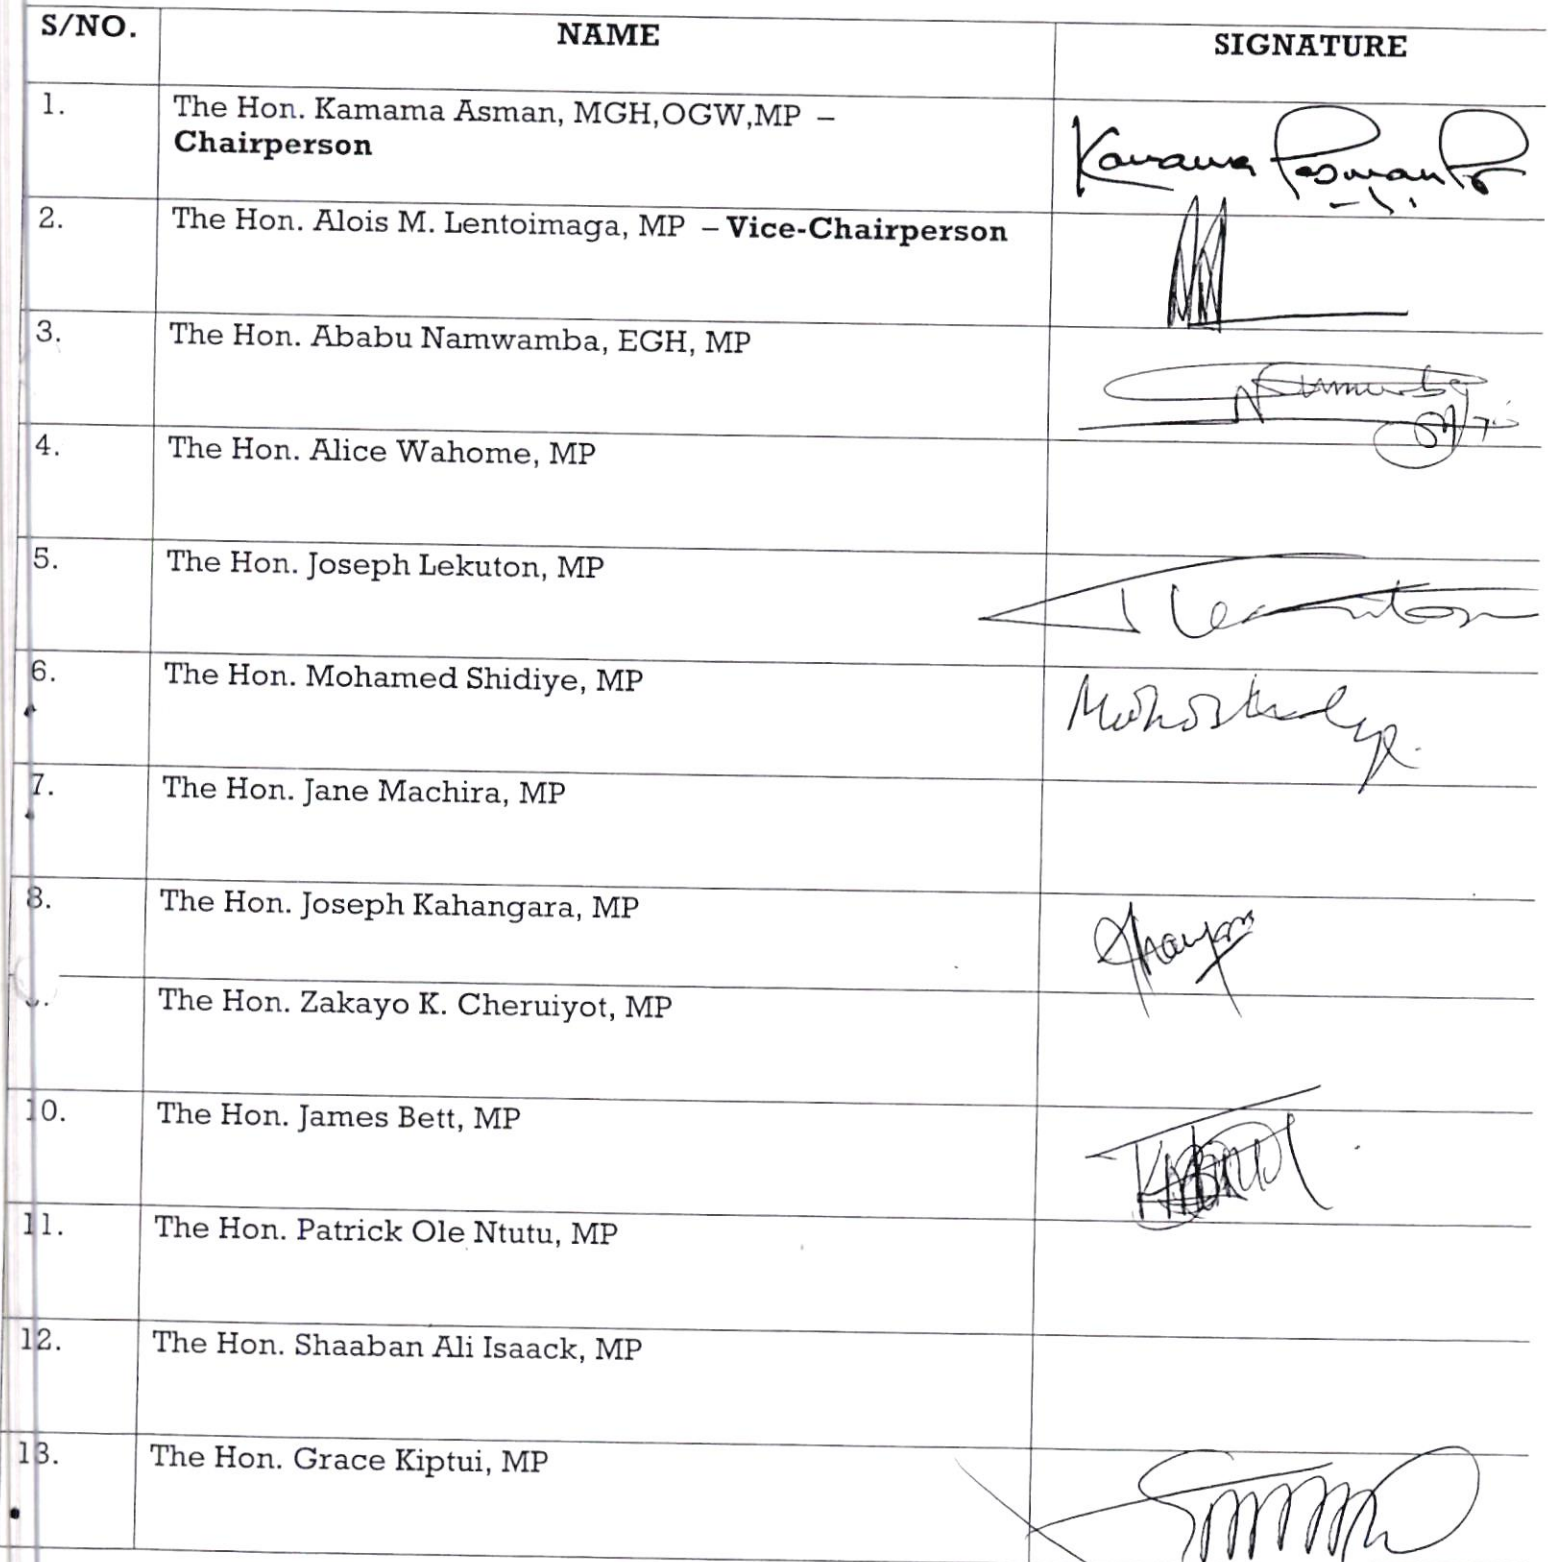 S/NO. NAME SIGNATURE
1. The Hon. Kamama Asman, MGH,OGW,MP –
Chairperson
Kamama Asman
2. The Hon. Alois M. Lentoimaga, MP – Vice-Chairperson
3. The Hon. Ababu Namwamba, EGH, MP
4. The Hon. Alice Wahome, MP
5. The Hon. Joseph Lekuton, MP
6. The Hon. Mohamed Shidiye, MP
7. The Hon. Jane Machira, MP
8. The Hon. Joseph Kahangara, MP
The Hon. Zakayo K. Cheruiyot, MP
10. The Hon. James Bett, MP
11. The Hon. Patrick Ole Ntutu, MP
12. The Hon. Shaaban Ali Isaack, MP
13. The Hon. Grace Kiptui, MP